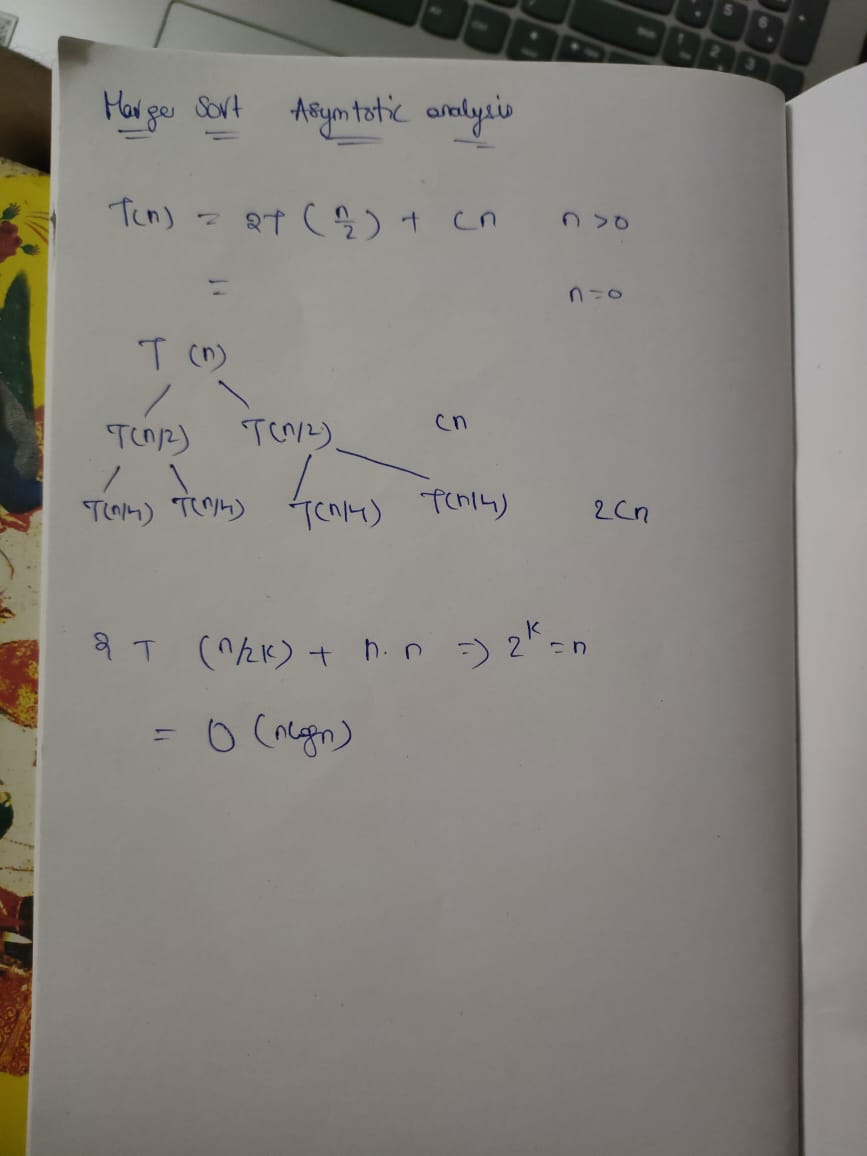 Merge Sort Asymtotic analysis
T(n) = 2T (n/2) + cn n>0
= n=0
T (n)
T(n/2) T(n/2) cn
T(n/4) T(n/4) T(n/4) T(n/4) 2cn
2 T (n/2k) + n.n => 2^k = n
= O (nlgn)